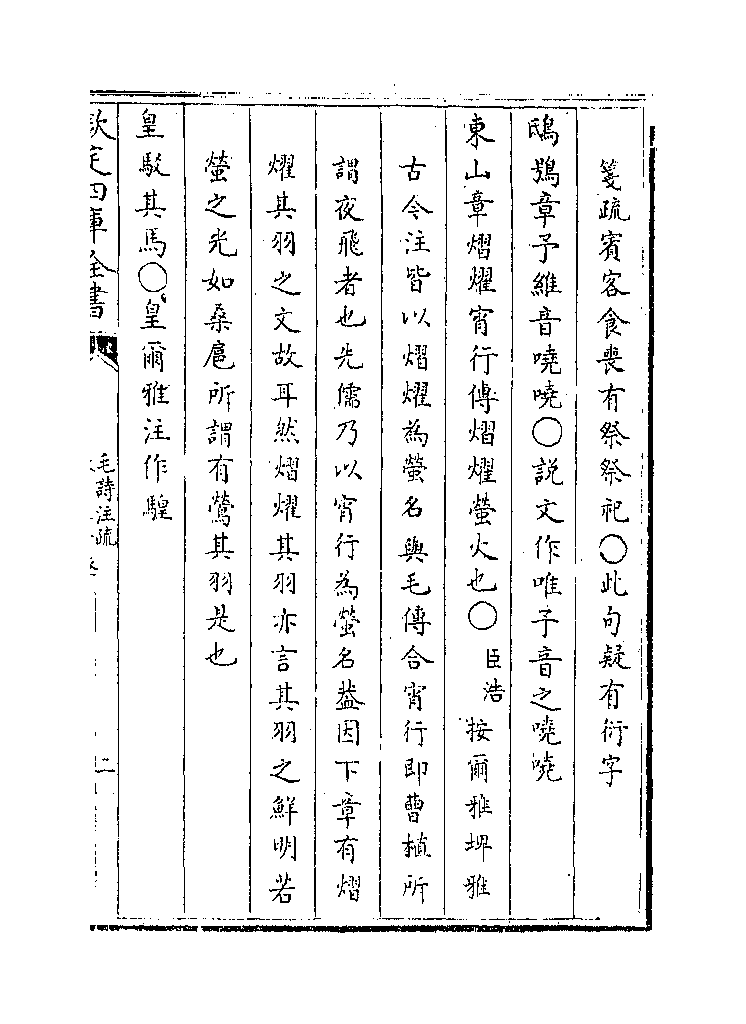 箋疏賓客食喪有祭祭祀〇此句疑有衍字
鴟鴞章予維音嘵嘵〇説文作唯予音之嘵嘵
東山章熠燿宵行傳熠燿螢火也〇臣浩按爾雅埤雅
古今注皆以熠燿為螢名與毛傳合宵行即曹植所
謂夜飛者也先儒乃以宵行為螢名葢因下章有熠
燿其羽之文故耳然熠燿其羽亦言其羽之鮮明若
螢之光如桑扈所謂有鶯其羽是也
皇駁其馬〇皇爾雅注作騜
欽定四庫全書
毛詩注疏
二